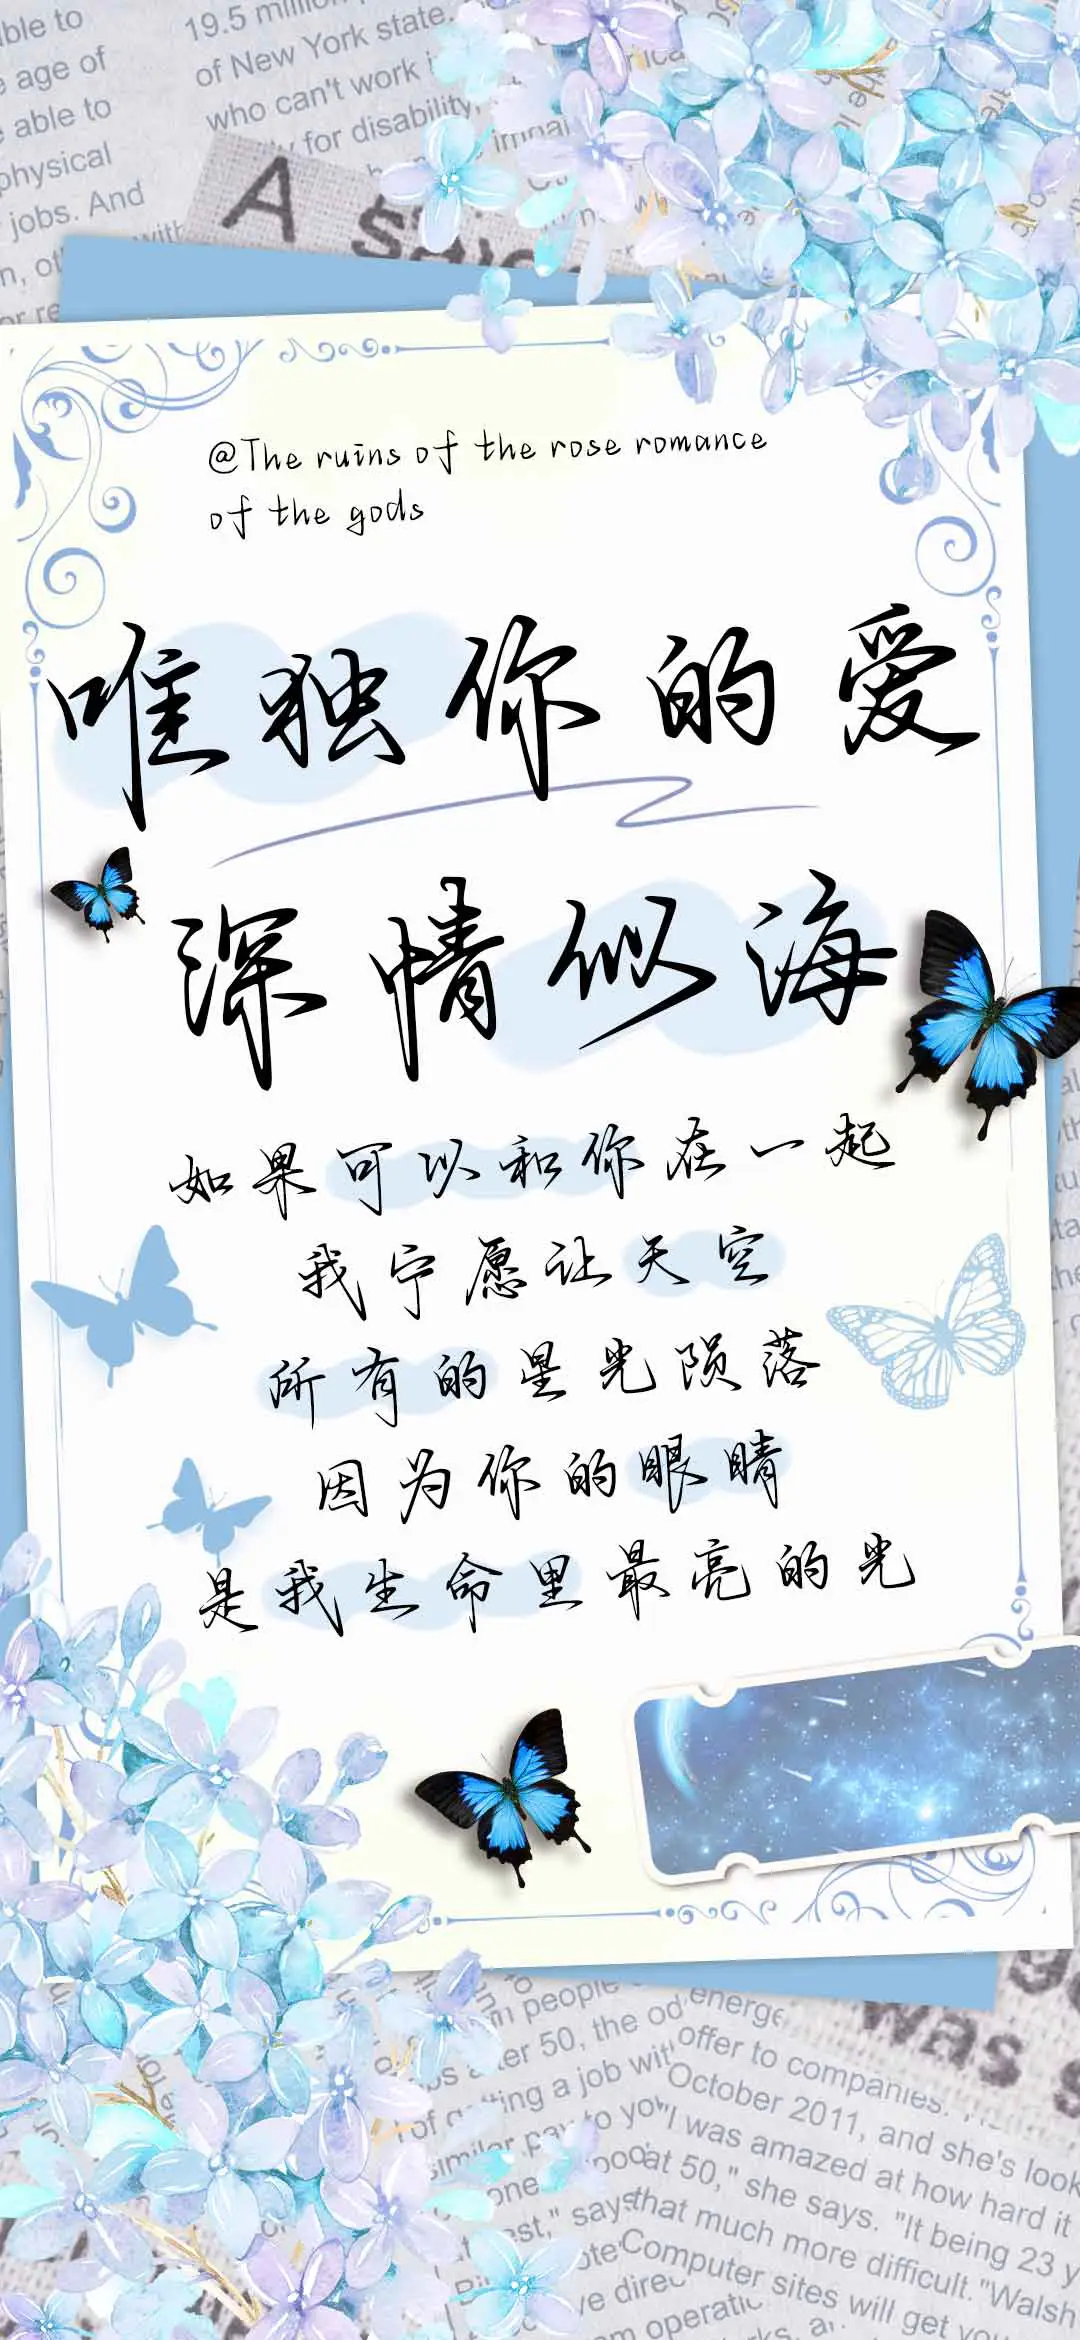 19.5 million
of New York state.
who can't work
for disability,
able to
age of
able to
physical
jobs. And
with
A said
@The ruins of the rose romance
of the gods
唯独你的爱
深情似海
如果可以和你在一起
我宁愿让天空
所有的星光陨落
因为你的眼睛
是我生命里最亮的光
was
people
50, the
a job with
to
offer to companies.
October 2011, and she's look
"I was amazed at how hard it
at 50," she says. "It being 23 y
that much more difficult."Walsh
Computer sites will get you